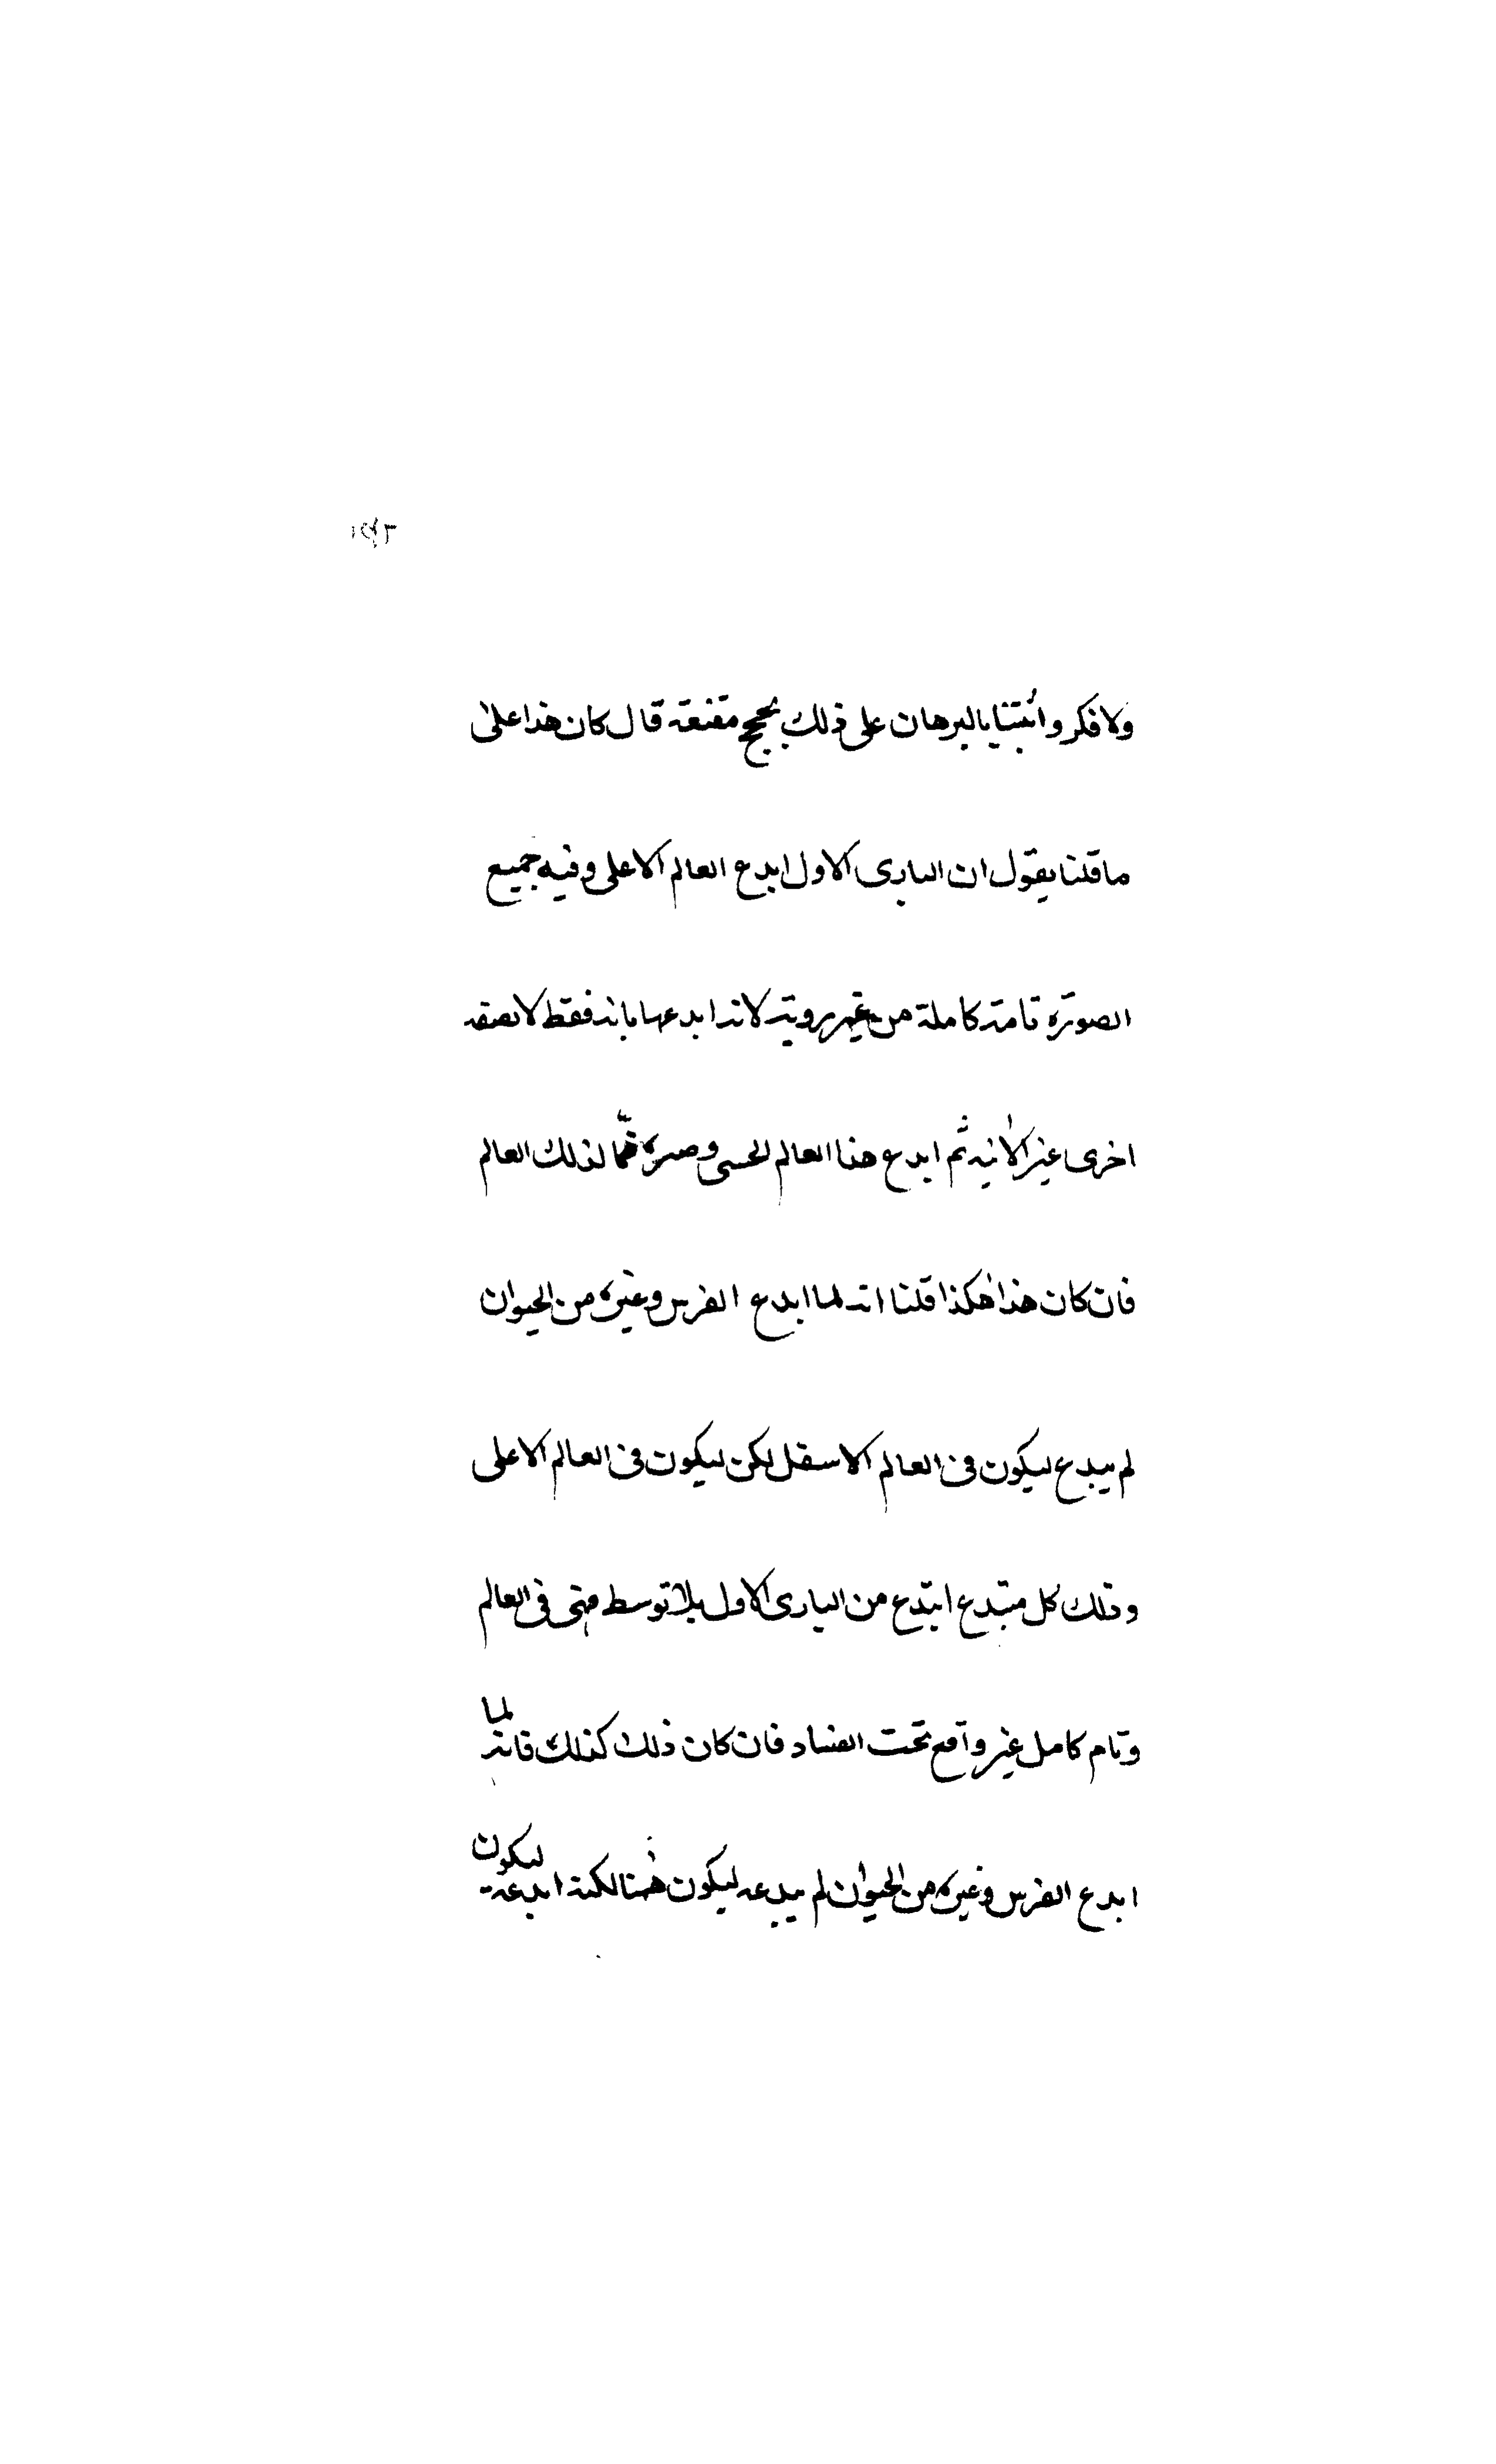 ولا فكر واثبتنا بالبرهان على ذلك بحجج مقنعة قال كان هذا على
ما قلنا بقول ان البارى الاول ابدع العالم الاعلى وفيه جميع
الصورة تامة كاملة من غير روية لانه ابدعها بانه فقط لا بصفة
اخرى غير الانية ثم ابدع هذا العالم الحسى وصيره لذلك العالم
فان كان هذا هكذا قلنا انه لما ابدع الفرس وغيره من الحيوان
لم يبدع ليكون فى العالم الاسفل لكن ليكون فى العالم الاعلى
وذلك كل مبتدع ابتدع من البارى الاول بلا توسط فهى فى العالم
وتام كامل غير واقع تحت الفساد فان كان ذلك كذلك فانه لما
ابدع الفرس وغيره من الحيوان لم يبدعه ليكون هٰهنا لكنه ابدعه ليكون